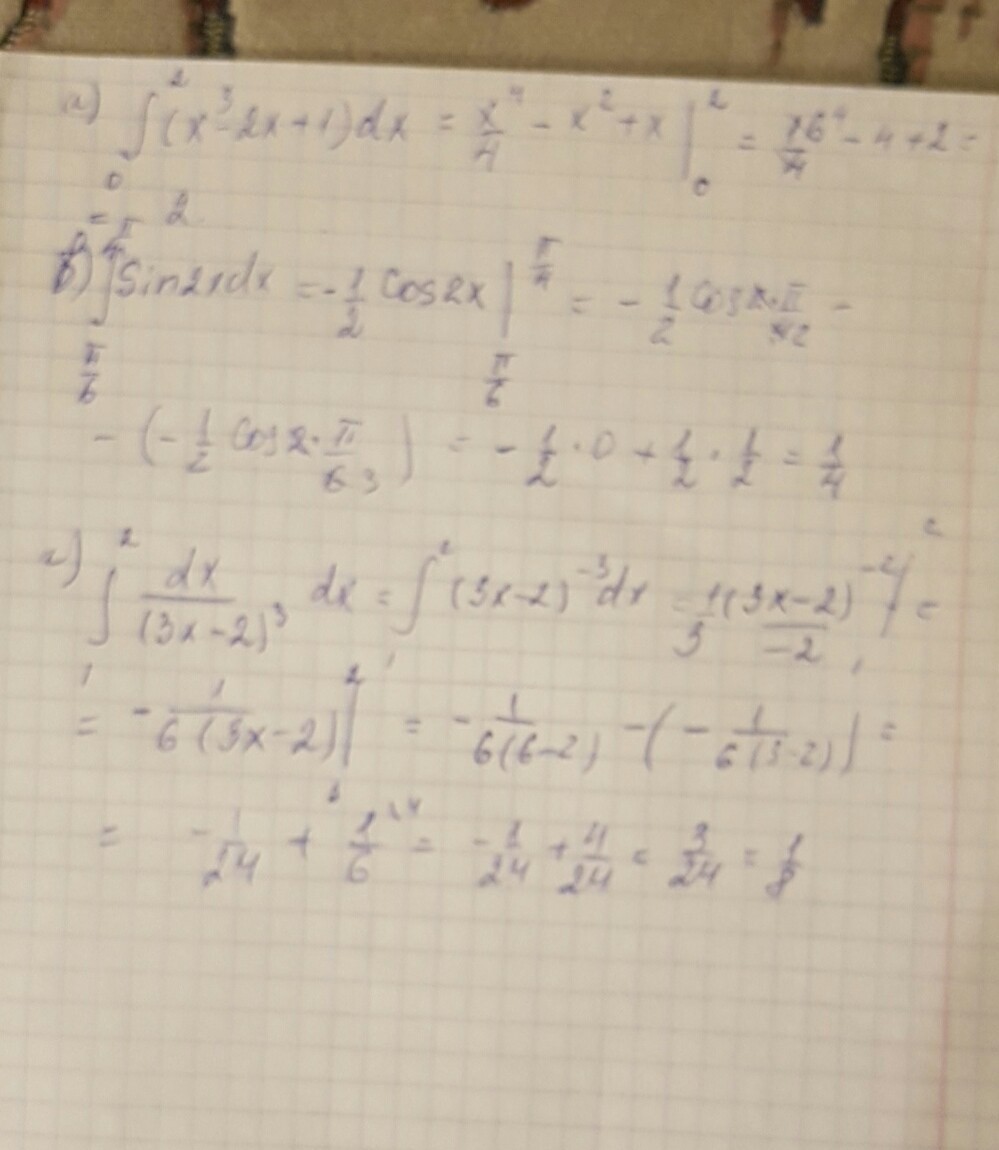 а) ∫₀² (x³-2x+1)dx = x⁴/4 - x² + x |₀² = 16/4 - 4 + 2 =
= 2
∫ Sin2xdx = -1/2 Cos2x | = -1/2 Cos 2·π/4 -
- (-1/2 Cos 2·π/6) = -1/2·0 + 1/2·1/2 = 1/4
г) ∫₁² dx/(3x-2)³ dx = ∫₁² (3x-2)⁻³dx = 1/3 (3x-2)/-2 | =
= -1/6(3x-2) |₁² = -1/6(6-2) - (-1/6(3-2)) =
= -1/24 + 1/6 = -1/24 + 4/24 = 3/24 = 1/8